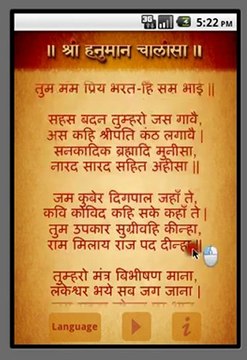 5:22 PM
॥ श्री हनुमान चालीसा ॥
तुम मम प्रिय भरत-हि सम भाई ॥
सहस बदन तुम्हरो जस गावै,
अस कहि श्रीपति कंठ लगावै |
सनकादिक ब्रह्मादि मुनीसा,
नारद सारद सहित अहीसा ||
जम कुबेर दिगपाल जहाँ ते,
कवि कोविद कहि सके कहाँ ते |
तुम उपकार सुग्रीवहि कीन्हा,
राम मिलाय राज पद दीन्हा ||
तुम्हरो मंत्र विभीषण माना,
लंकेश्वर भये सब जग जाना |
Language
i